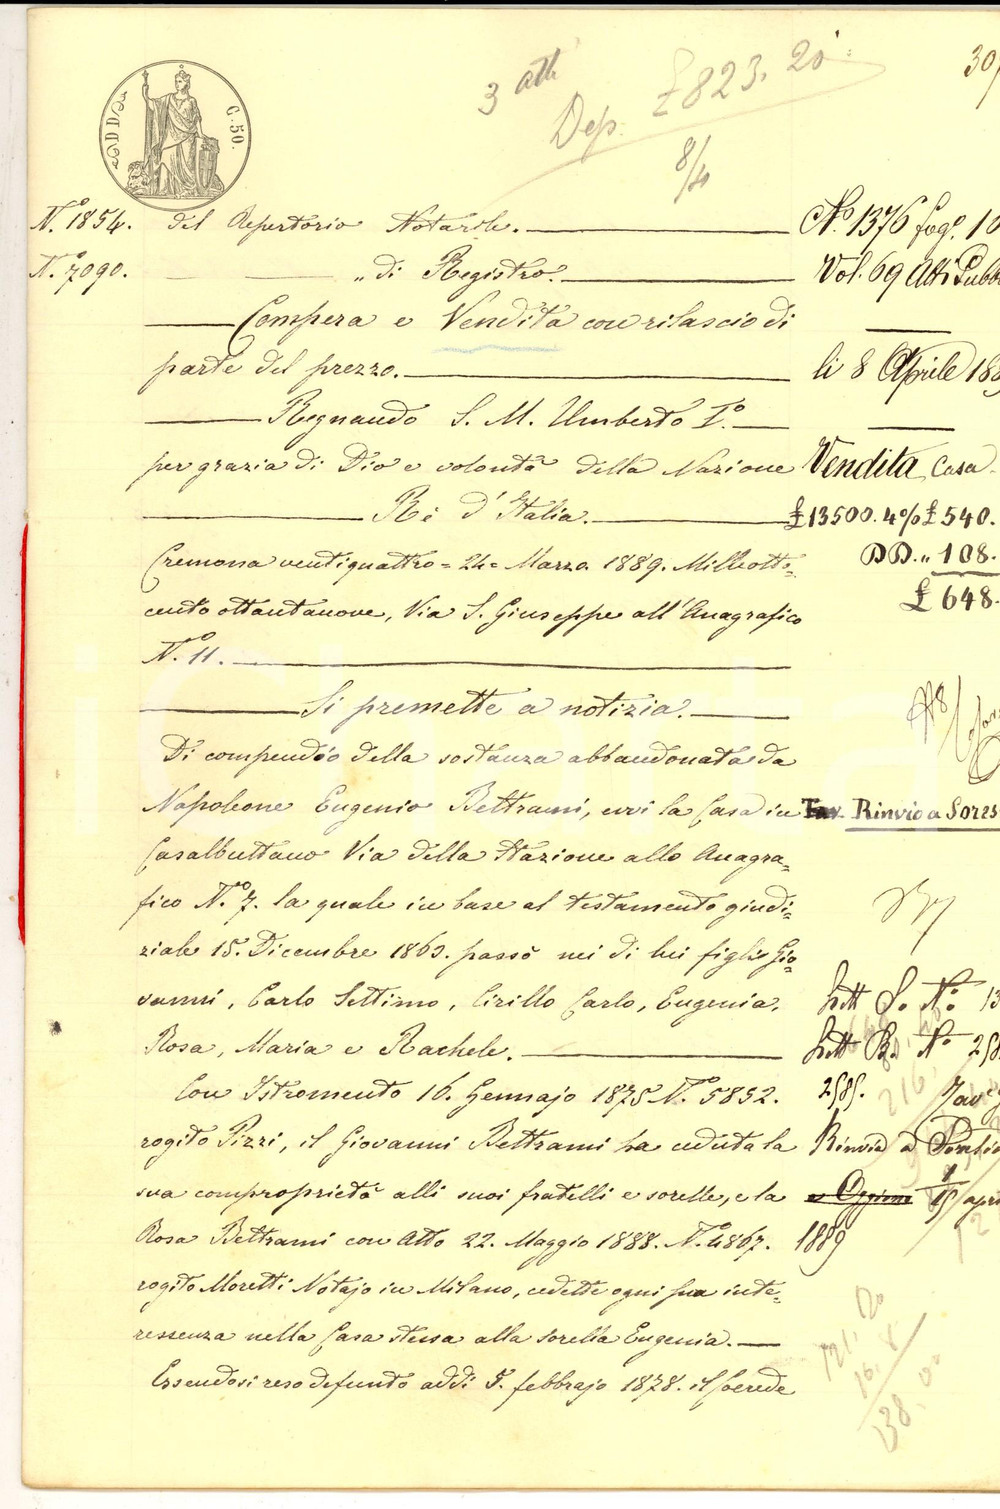 3 atti
Dep. £823.20
8/4
307
C. 50.
N.º 1854. del Repertorio Notarile.
N.º 7090. „ di Registro.
Compera e Vendita con rilascio di
parte del prezzo.
Regnando S. M. Umberto I.º
per grazia di Dio e volontà della Nazione
Re d'Italia.
Cremona ventiquattro = 24 = Marzo 1889. Milleotto-
cento ottantanove, Via S. Giuseppe all'Anagrafico
N.º 11.
Si premette a notizia.
Di compendio della sostanza abbandonata da
Napoleone Eugenio Beltrami, evvi la Casa in
Casalbuttano Via della Stazione allo Anagra-
fico N.º 7. la quale in base al testamento giudi-
ziale 15. Dicembre 1863. passò nei di lui figli Gio-
vanni, Carlo Settimo, Cirillo Carlo, Eugenia,
Rosa, Maria e Rachele.
Con Istromento 16. Gennajo 1875 N.º 5852.
rogito Pizzi, il Giovanni Beltrami ha ceduta la
sua comproprietà alli suoi fratelli e sorelle, e la
Rosa Beltrami con Atto 22. Maggio 1888. N.º 4867.
rogito Moretti Notajo in Milano, cedette ogni sua inte-
ressenza nella Casa stessa alla sorella Eugenia.
Essendosi reso defunto addì 5. febbrajo 1878. il Coerede
N.º 1376 fog.º 10
Vol. 69 Atti Pubb
li 8 Aprile 188
Vendita Casa
£ 13500. 4% £ 540.
DD. „ 108.
£ 648.
Rinvio a Sores
N.º 13
N.º 258
2585.
Rinvio a
apri
1889